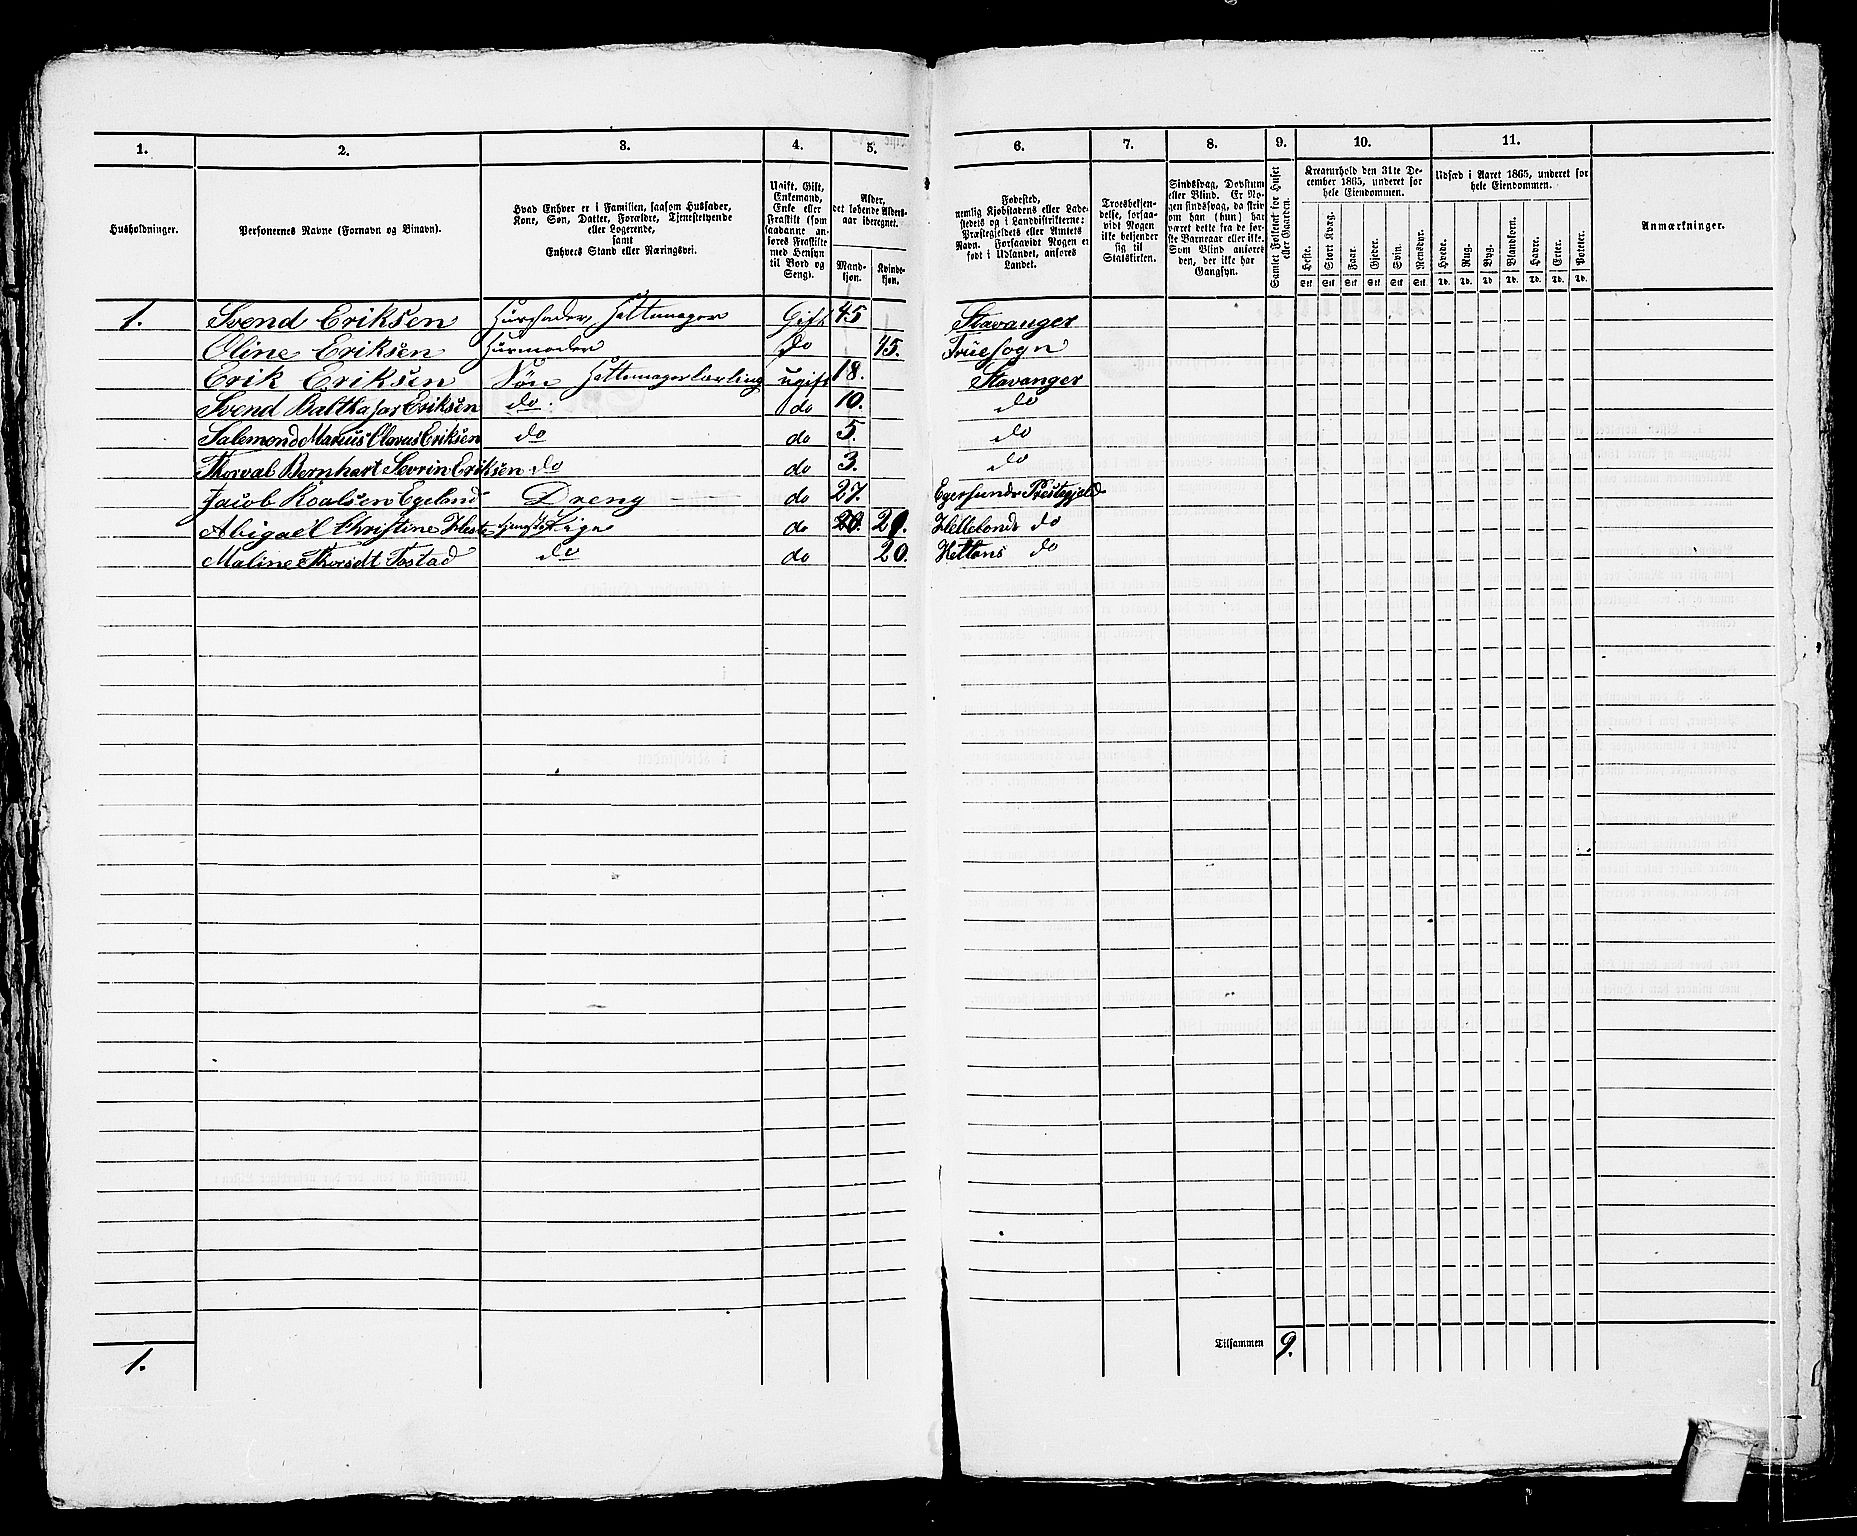 1. 2. 3. 4. 5. 6. 7. 8. 9. 10. 11.
Husholdninger.
Personernes Navne (Fornavn og Binavn).
Hvad Enhver er i Familien, saasom Husfader,
Kone, Søn, Datter, Forældre, Tjenestetyende
eller Logerende,
samt
Enhvers Stand eller Næringsvei.
Ugift, Gift,
Enkemand,
Enke eller
Fraskilt (som
saadanne an-
føres Fraskilte
med Hensyn
til Bord og
Seng).
Alder,
det løbende Alders-
aar iberegnet.
Mand-
kjøn.
Kvinde-
kjøn.
Fødested,
nemlig Kjøbstadens eller Lade-
stedets og i Landdistrikterne:
Præstegjeldets eller Amtets
Navn. Forsaavidt Nogen er
født i Udlandet, anføres
Landet.
Troesbekjen-
delse, forsaa-
vidt Nogen
ikke bekjender
sig til
Statskirken.
Sindssvag, Døvstum
eller Blind. Er No-
gen sindssvag, da skriv
om han (hun) har
været dette fra de før-
ste Barneaar eller ikke.
Som Blind anføres
den, der ikke har
Gangsyn.
Samlet Folketal for Huset
eller Gaarden.
Kreaturhold den 31te De-
cember 1865, underet for
hele Eiendommen.
Heste. Stort Kvæg. Faar. Gjeder. Svin. Rensdyr.
Stk Stk Stk Stk Stk Stk
Udsæd i Aaret 1865, underet for
hele Eiendommen.
Hvede. Rug. Byg. Blandkorn. Havre. Erter. Poteter.
Td. Td. Td Td. Td. Td. Td.
Anmærkninger.
1. Svend Eriksen Huusfader, Hattemager Gift 45 Stavanger
Oline Eriksen Huusmoder Do 45. Friesogn
Erik Eriksen Søn Hattemagerlærling ugift 18. Stavanger
Svend Balthasar Eriksen do. do 10. do
Salemond Marius Olavus Eriksen do do 5. do
Thorval Bernhart Sevrin Eriksen do do 3. do
Jacob Roalsen Egeland Dreng do 27. Egersunds Prestegjeld
Abigael Christine Heste Pige do 20. Hellelands do
Maline Thorsdt Tostad do do 20. Hettans do
1.
Tilsammen 9.